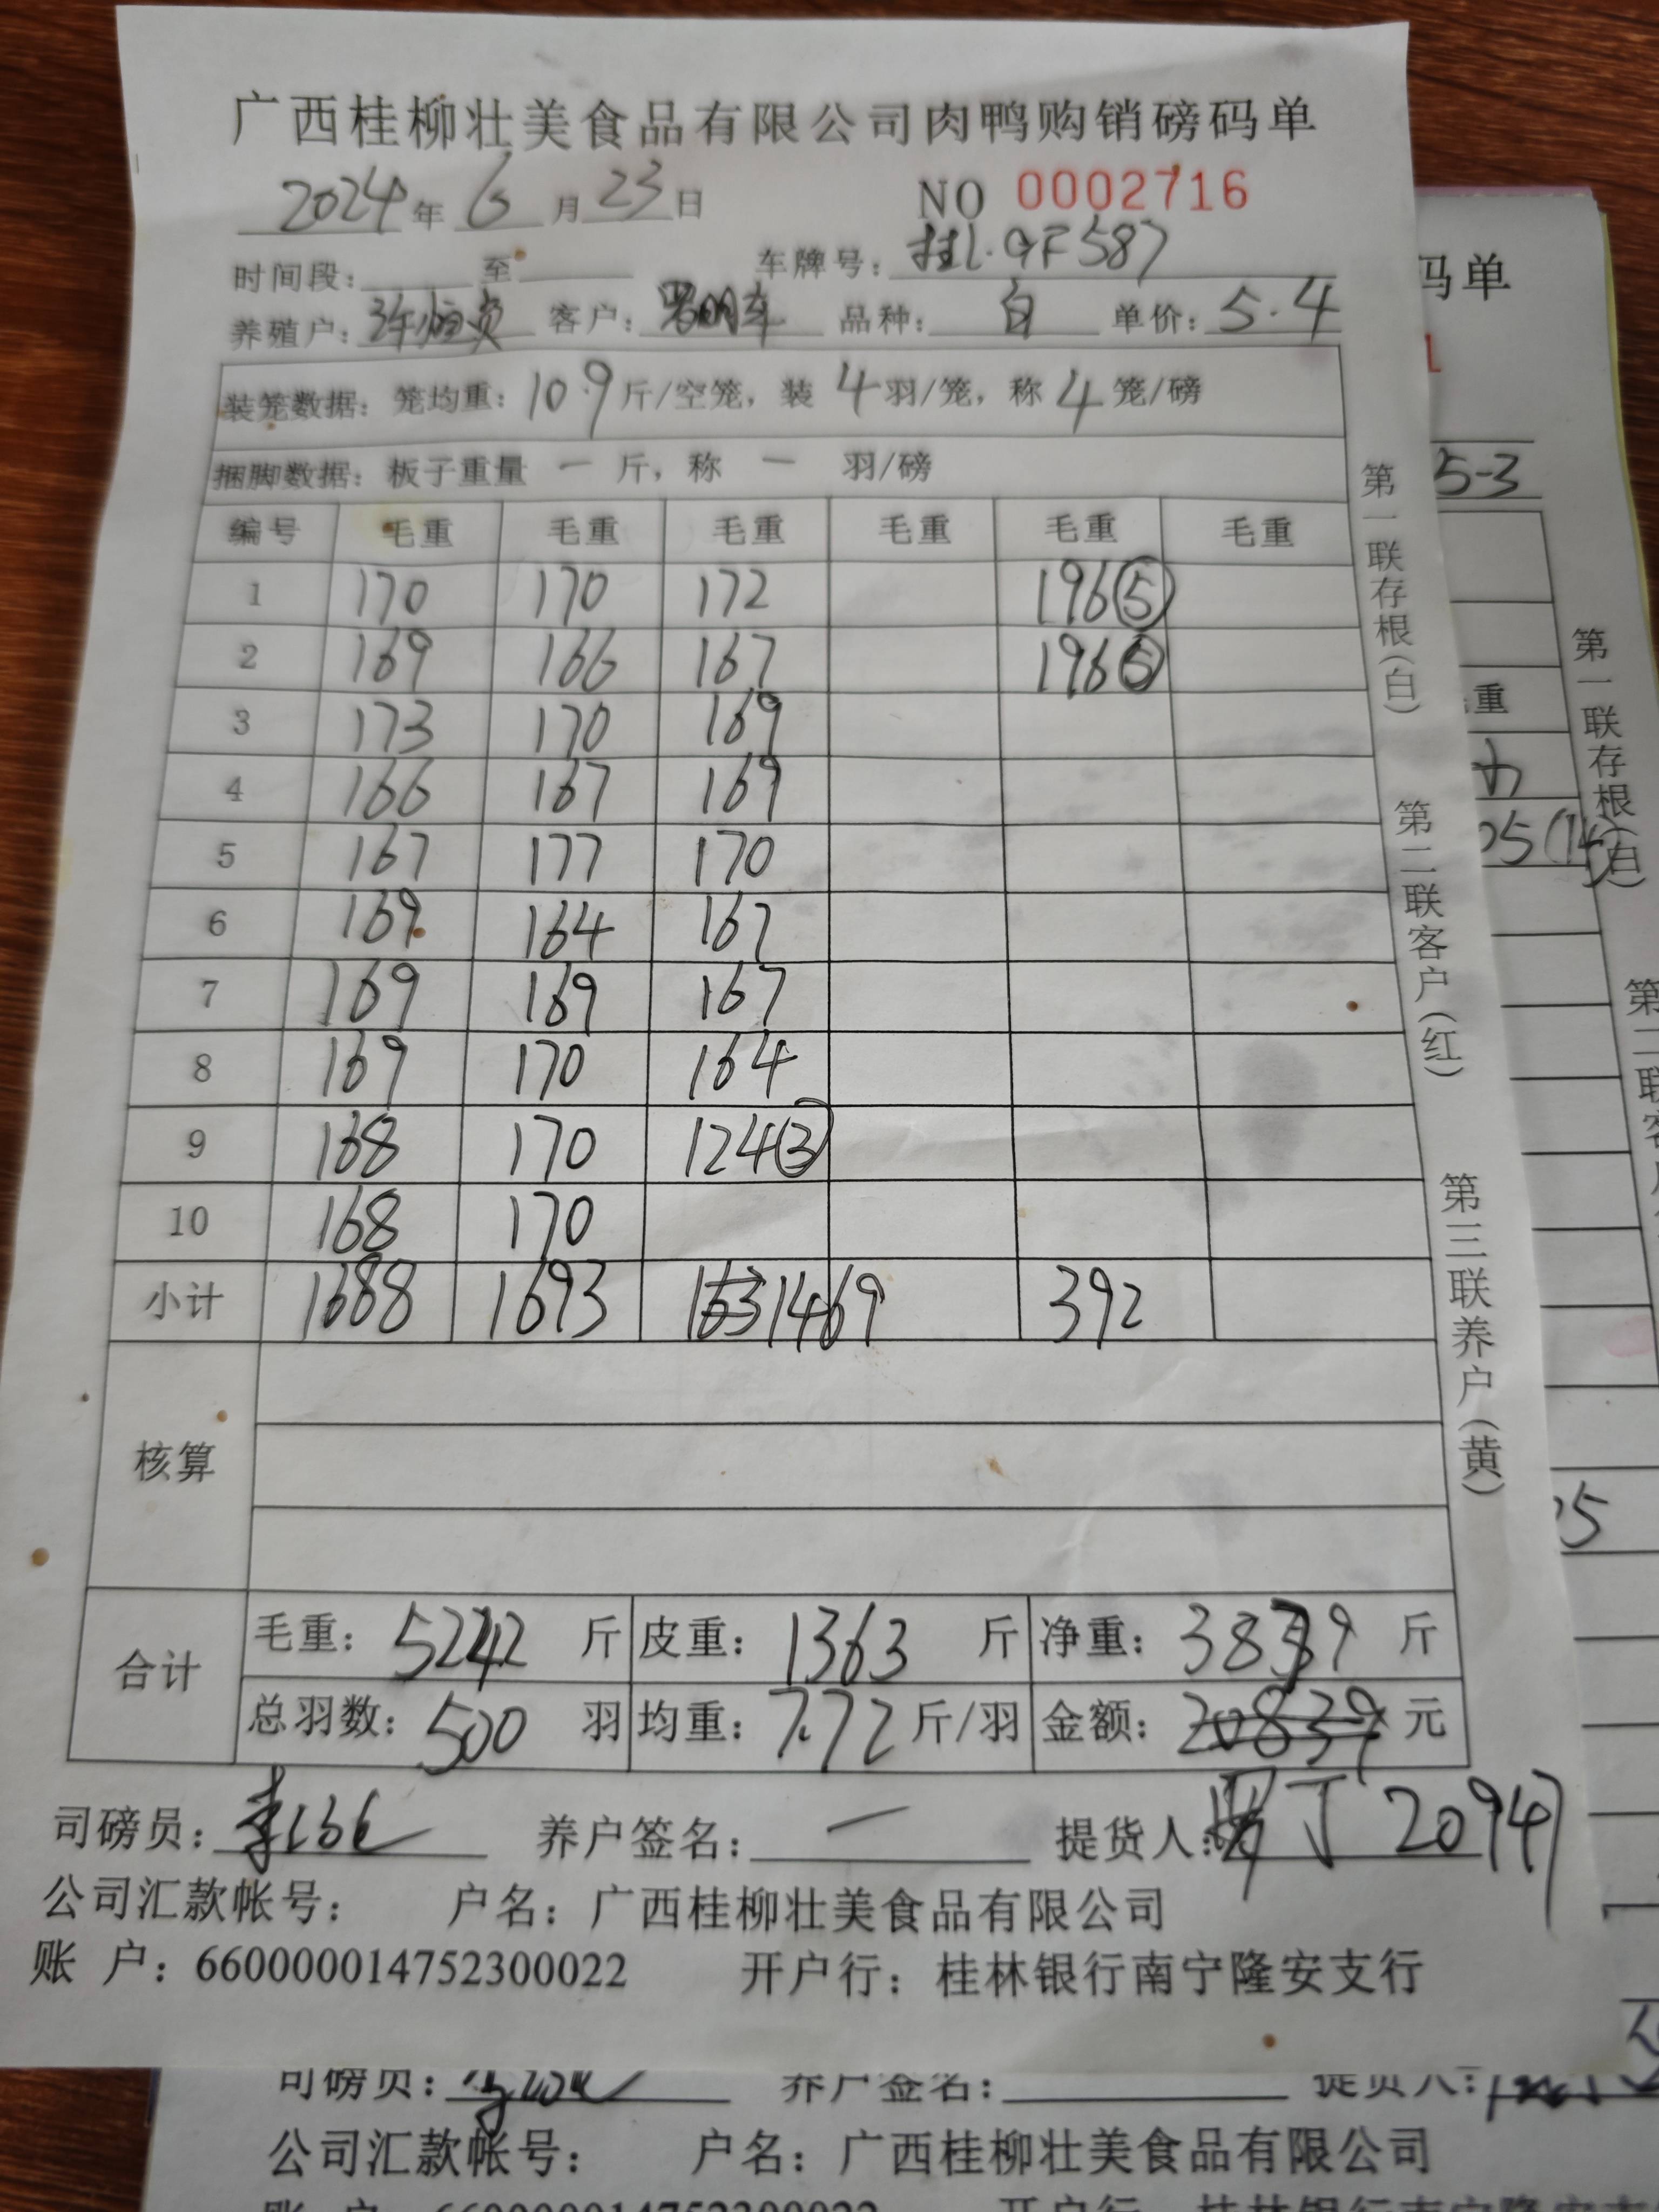 广西桂柳壮美食品有限公司肉鸭购销磅码单
2024年 6 月 23 日 NO 0002716
时间段: 至 车牌号: 桂L·GF587
养殖户: 客户: 品种: 白 单价: 5.4
装笼数据: 笼均重: 10.9 斤/空笼, 装 4 羽/笼, 称 4 笼/磅
捆脚数据: 板子重量 一 斤, 称 一 羽/磅
编号 毛重 毛重 毛重 毛重 毛重 毛重
1 170 170 172 196⑤
2 169 166 167 196⑤
3 173 170 169
4 166 167 169
5 167 177 170
6 169 164 167
7 169 169 167
8 169 170 164
9 168 170 124③
10 168 170
小计 1688 1693 1469 392
核算
合计
毛重: 5242 斤 皮重: 1363 斤 净重: 3879 斤
总羽数: 500 羽 均重: 7.72 斤/羽 金额: 20839 元
司磅员: 养户签名: 一 提货人: 20947
公司汇款帐号: 户名: 广西桂柳壮美食品有限公司
账 户: 660000014752300022 开户行: 桂林银行南宁隆安支行
第一联存根(白)
第二联客户(红)
第三联养户(黄)
码单
1
5-3
重
05(14)
第一联存根(白)
司磅员: 养户签名: 提货人:
公司汇款帐号: 户名: 广西桂柳壮美食品有限公司